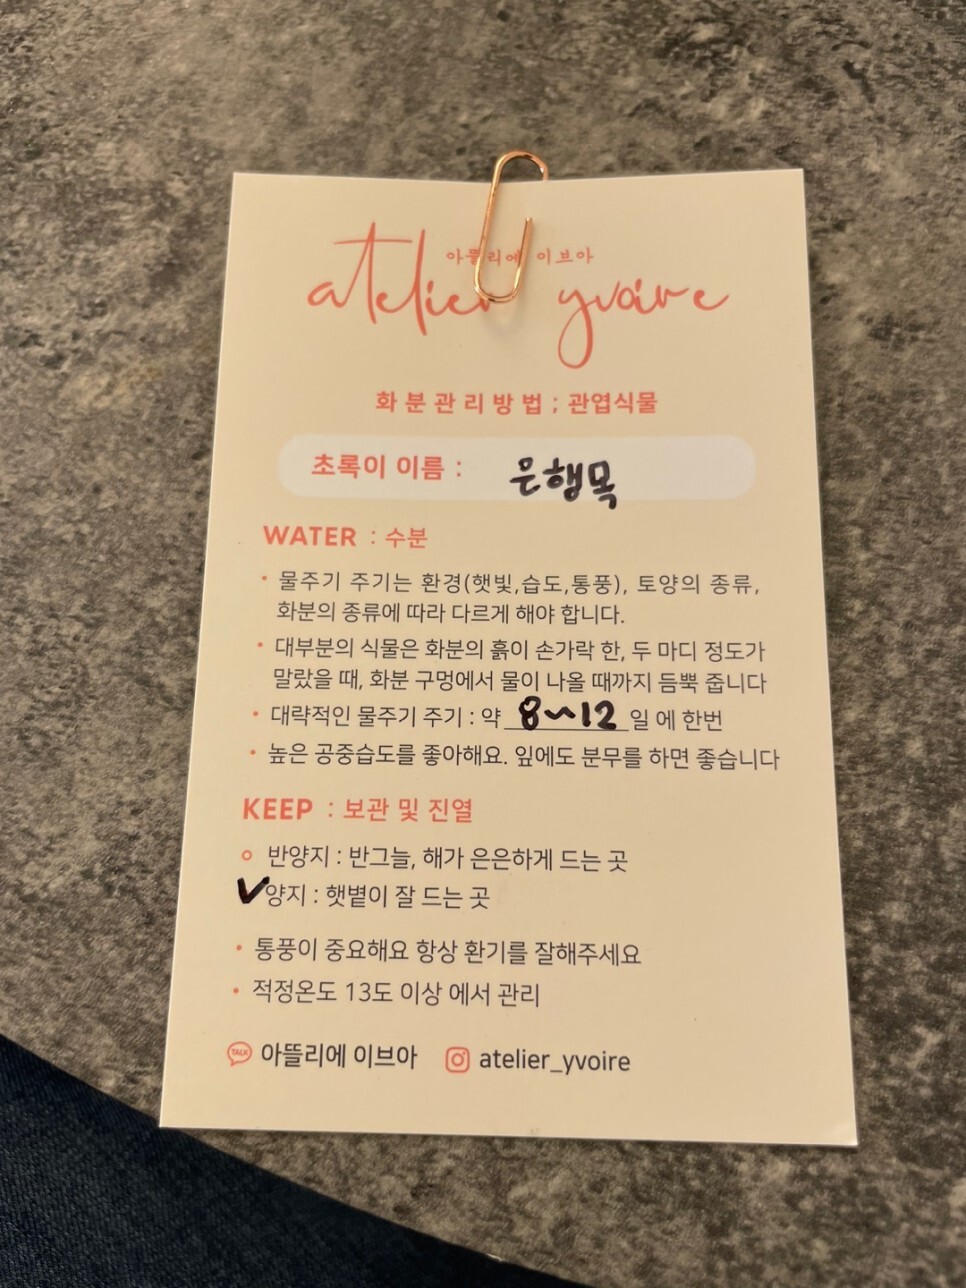 아뜰리에 이브아
atelier yvoire
화분관리방법 ; 관엽식물
초록이 이름 : 은행목
WATER : 수분
• 물주기 주기는 환경(햇빛,습도,통풍), 토양의 종류,
화분의 종류에 따라 다르게 해야 합니다.
• 대부분의 식물은 화분의 흙이 손가락 한, 두 마디 정도가
말랐을 때, 화분 구멍에서 물이 나올 때까지 듬뿍 줍니다
• 대략적인 물주기 주기 : 약 8~12 일 에 한번
• 높은 공중습도를 좋아해요. 잎에도 분무를 하면 좋습니다
KEEP : 보관 및 진열
○ 반양지 : 반그늘, 해가 은은하게 드는 곳
✓ 양지 : 햇볕이 잘 드는 곳
• 통풍이 중요해요 항상 환기를 잘해주세요
• 적정온도 13도 이상 에서 관리
TALK 아뜰리에 이브아 atelier_yvoire